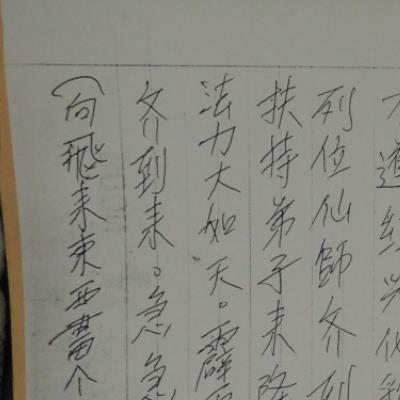 遵
列位仙師齐到
扶持弟子来降
法力大如天。霹
齐到来。急急
（向飛来東西畫个